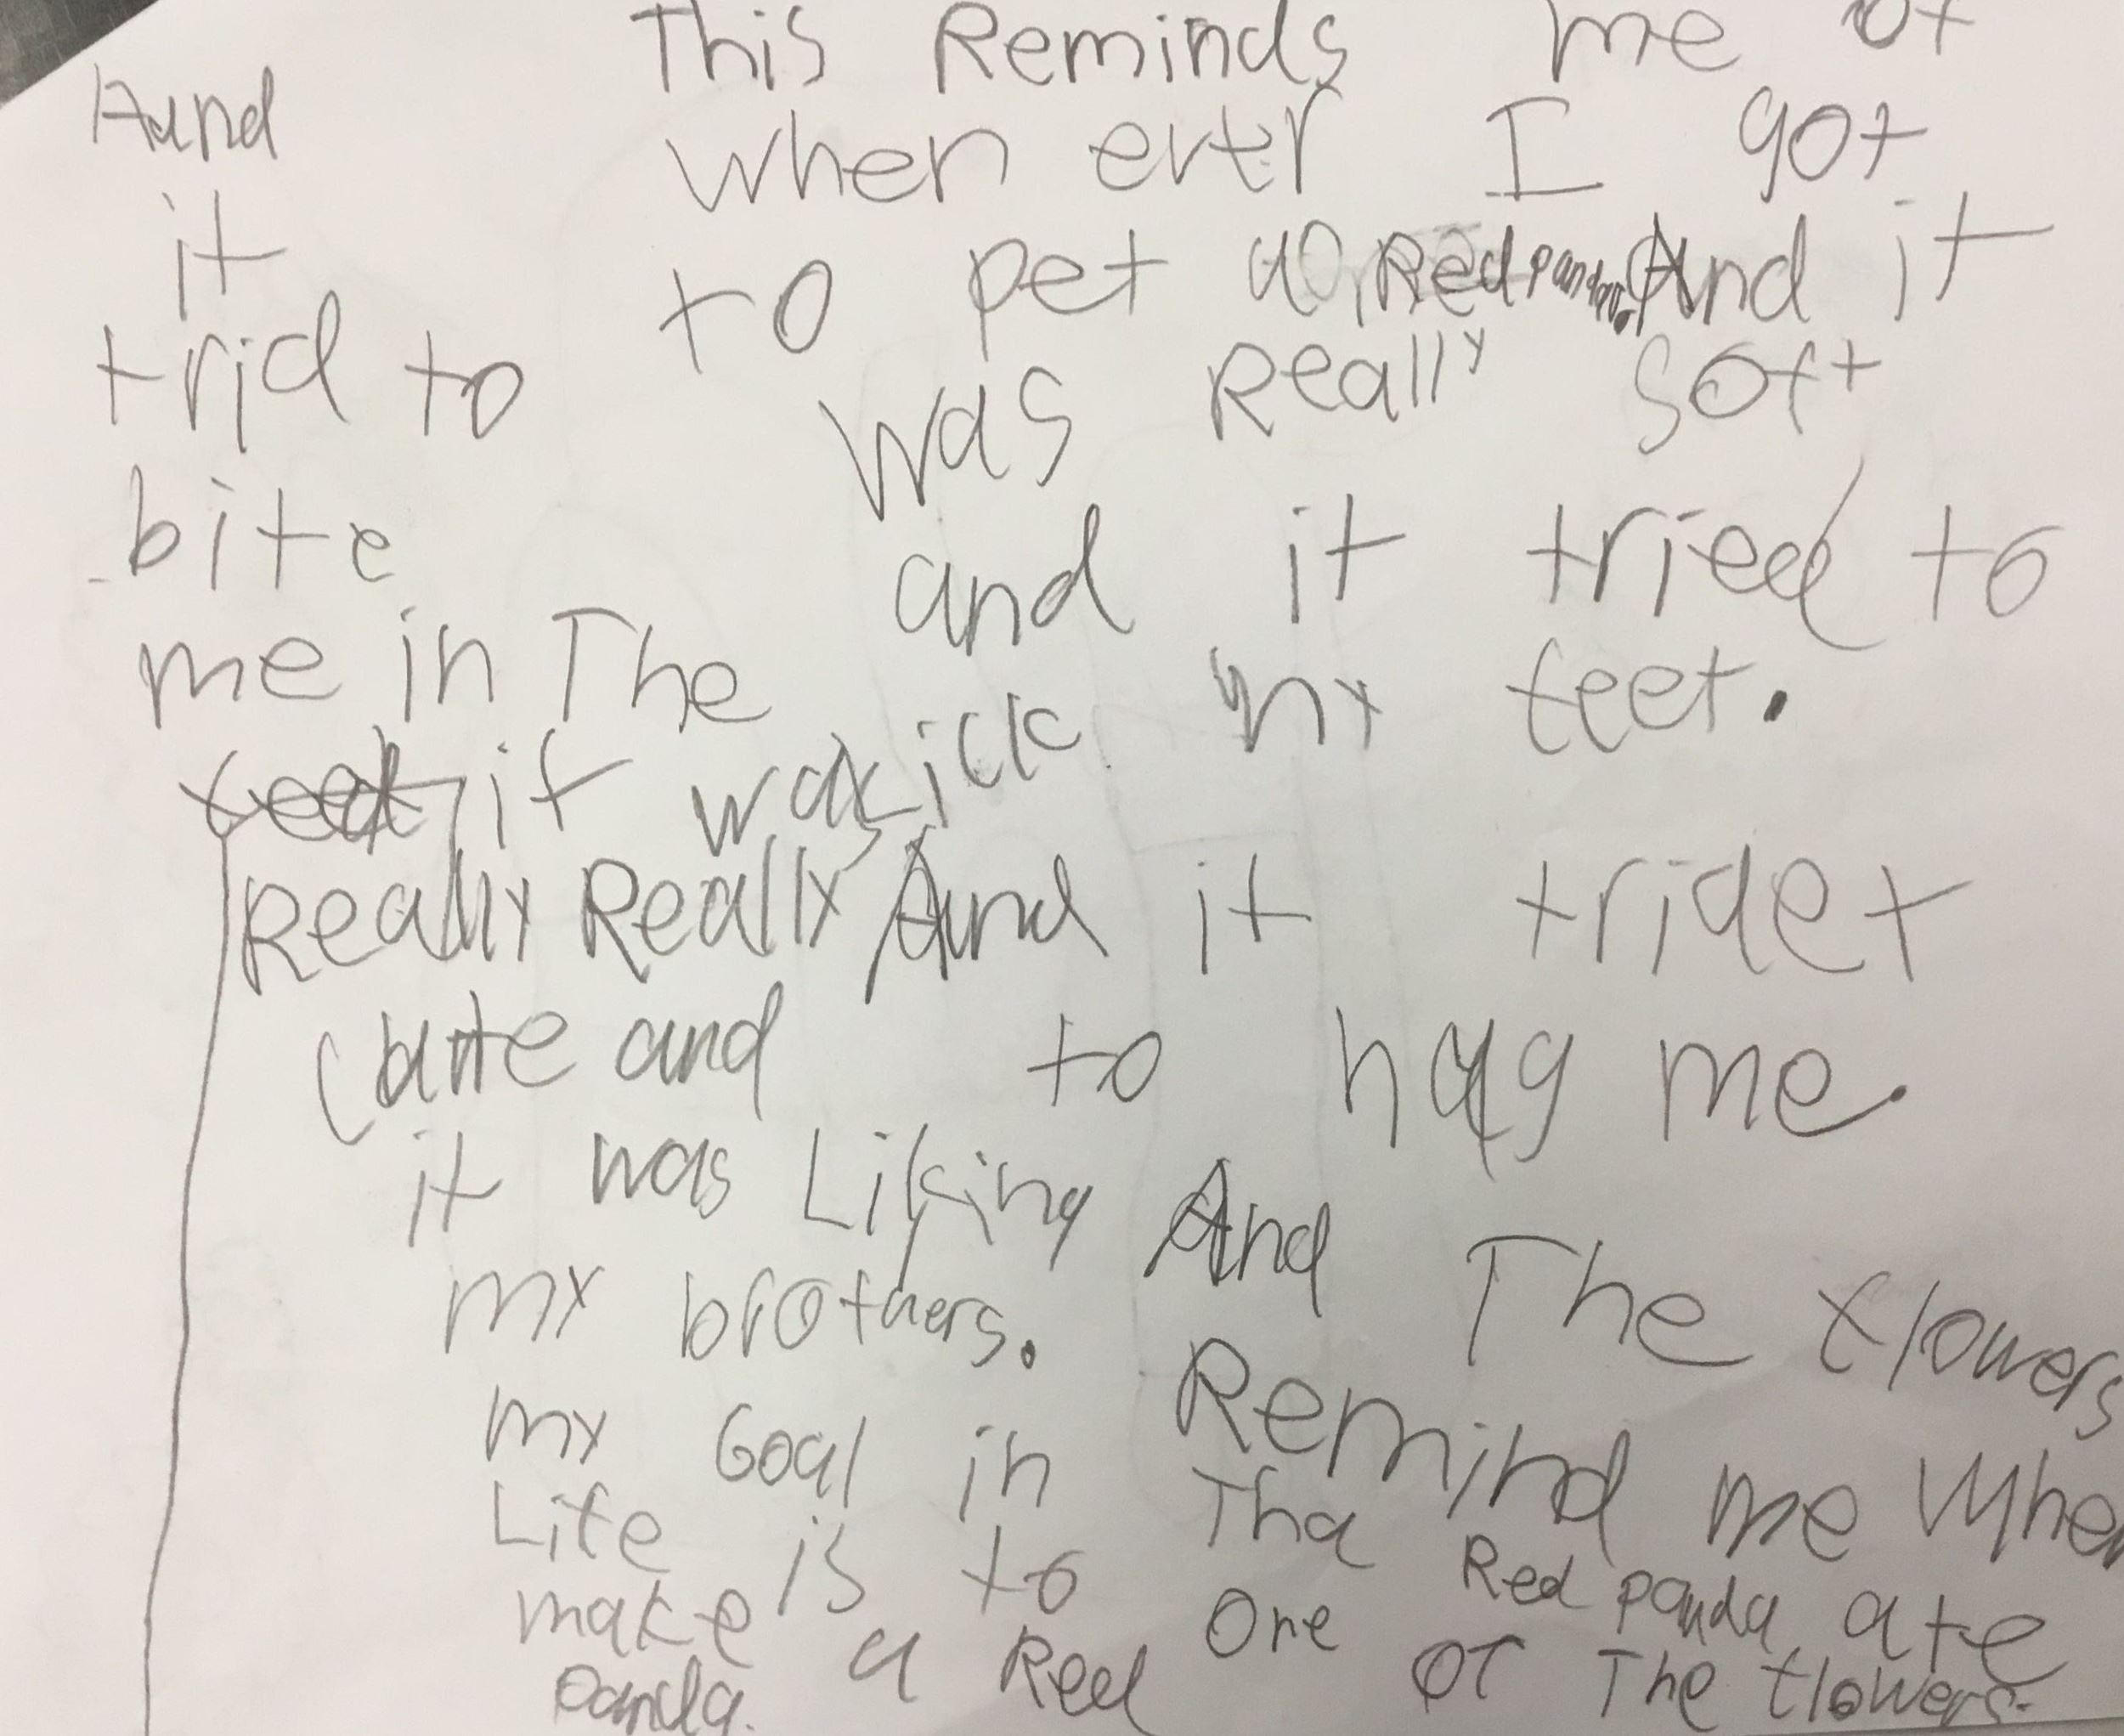 This Reminds me of
when ever I got
to pet a Red panda. And it
was Really soft
and it tried to
Lick my feet.
And it tridet
to hug me.
And The flowers
Remind me When
Tha Red panda ate
One of The flowers.
Aand
it
trid to
bite
me in The
it was
Really Really
cute and
it was Liking
my brothers.
my Goal in
Life is to
make a Red
panda.